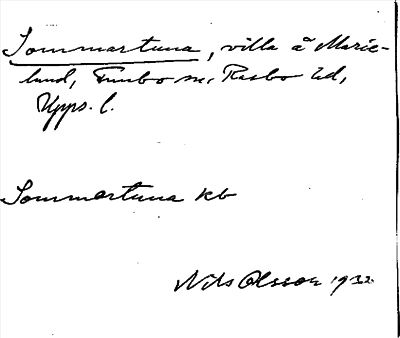 Sommartuna, villa å Marie-
lund, Funbo sn, Rasbo hd,
Upps. l.
Sommartuna kb
Nils Olsson 1932